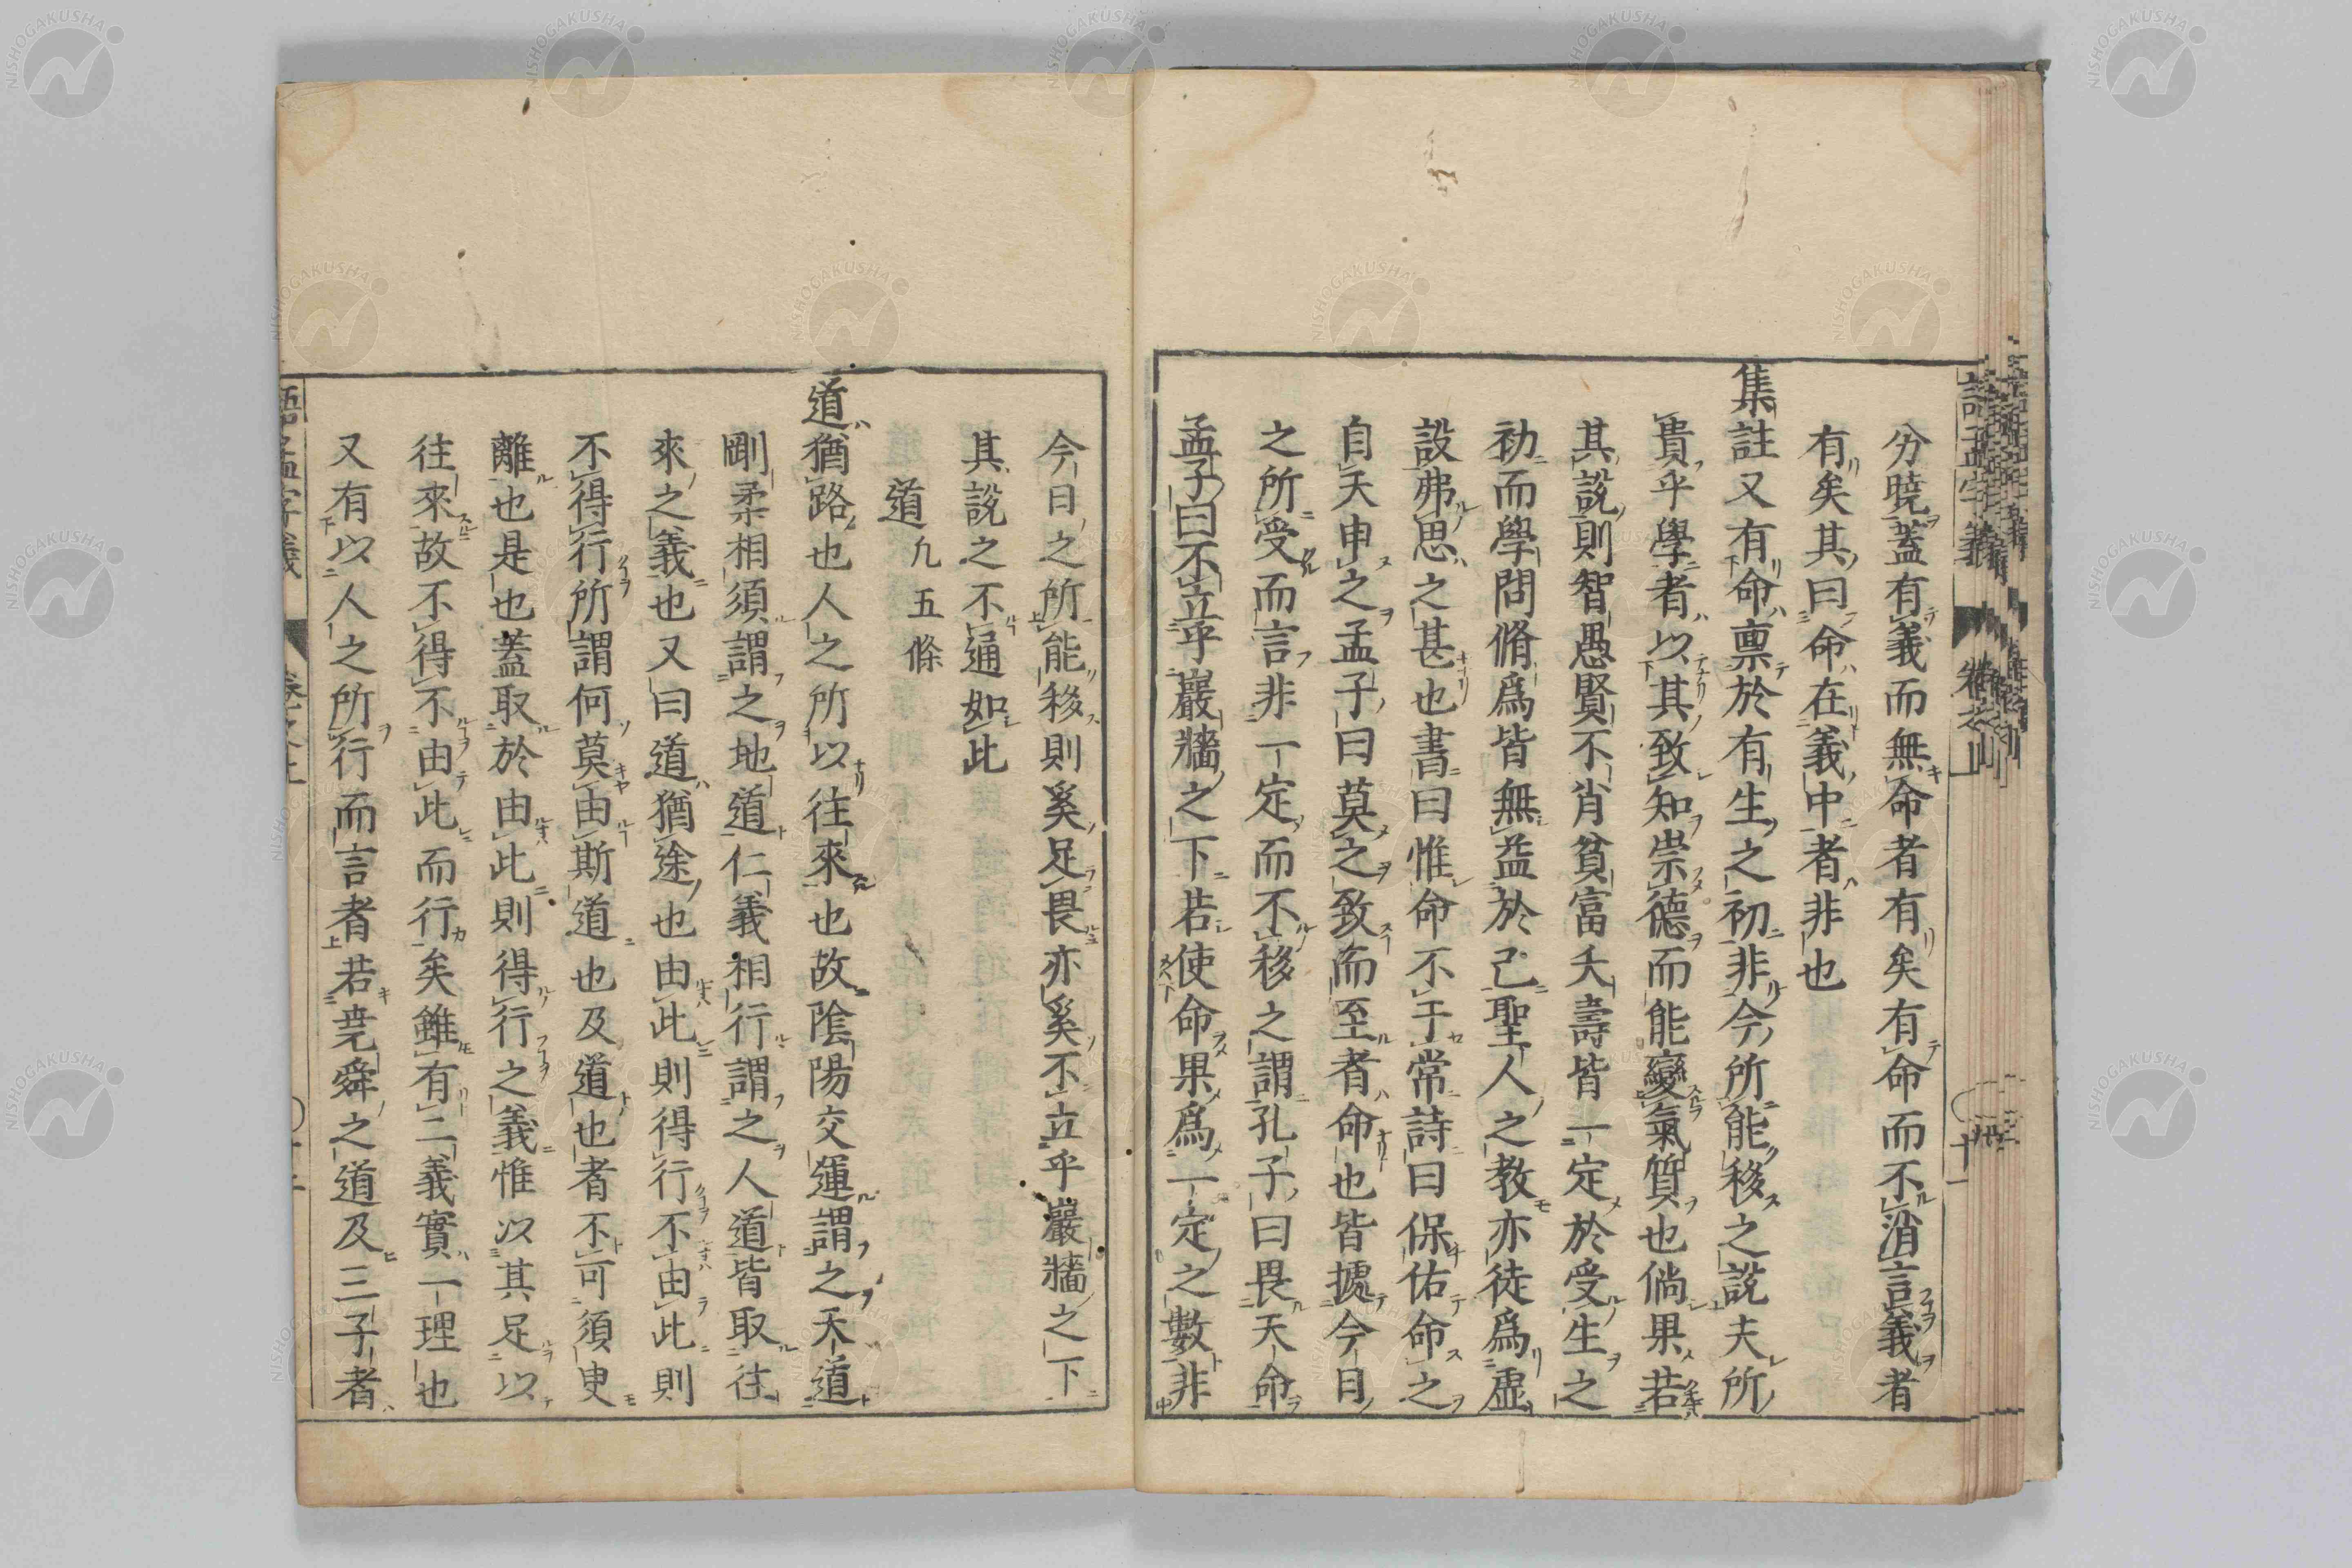 分曉蓋有義而無命者有矣有命而不消言義者
有矣其曰命在義中者非也
集註又有命稟於有生之初非今所能移之說夫所
貴乎學者以其致知崇德而能變氣質也倘果若
其說則智愚賢不肖貧富夭壽皆一定於受生之
初而學問脩爲皆無益於己聖人之教亦徒爲虛
設弗思之甚也書曰惟命不于常詩曰保佑命之
自天申之孟子曰莫之致而至者命也皆據今日
之所受而言非一定而不移之謂孔子曰畏天命
孟子曰不立乎巖牆之下若使命果爲一定之數非
今日之所能移則奚足畏亦奚不立乎巖牆之下
其說之不通如此
道 凢五條
道猶路也人之所以往來也故陰陽交運謂之天道
剛柔相須謂之地道仁義相行謂之人道皆取往
來之義也又曰道猶途也由此則得行不由此則
不得行所謂何莫由斯道也及道也者不可須臾
離也是也蓋取於由此則得行之義惟以其足以
往來故不得不由此而行矣雖有二義實一理也
又有以人之所行而言者若堯舜之道及三子者
語孟字義
NISHOGAKUSHA